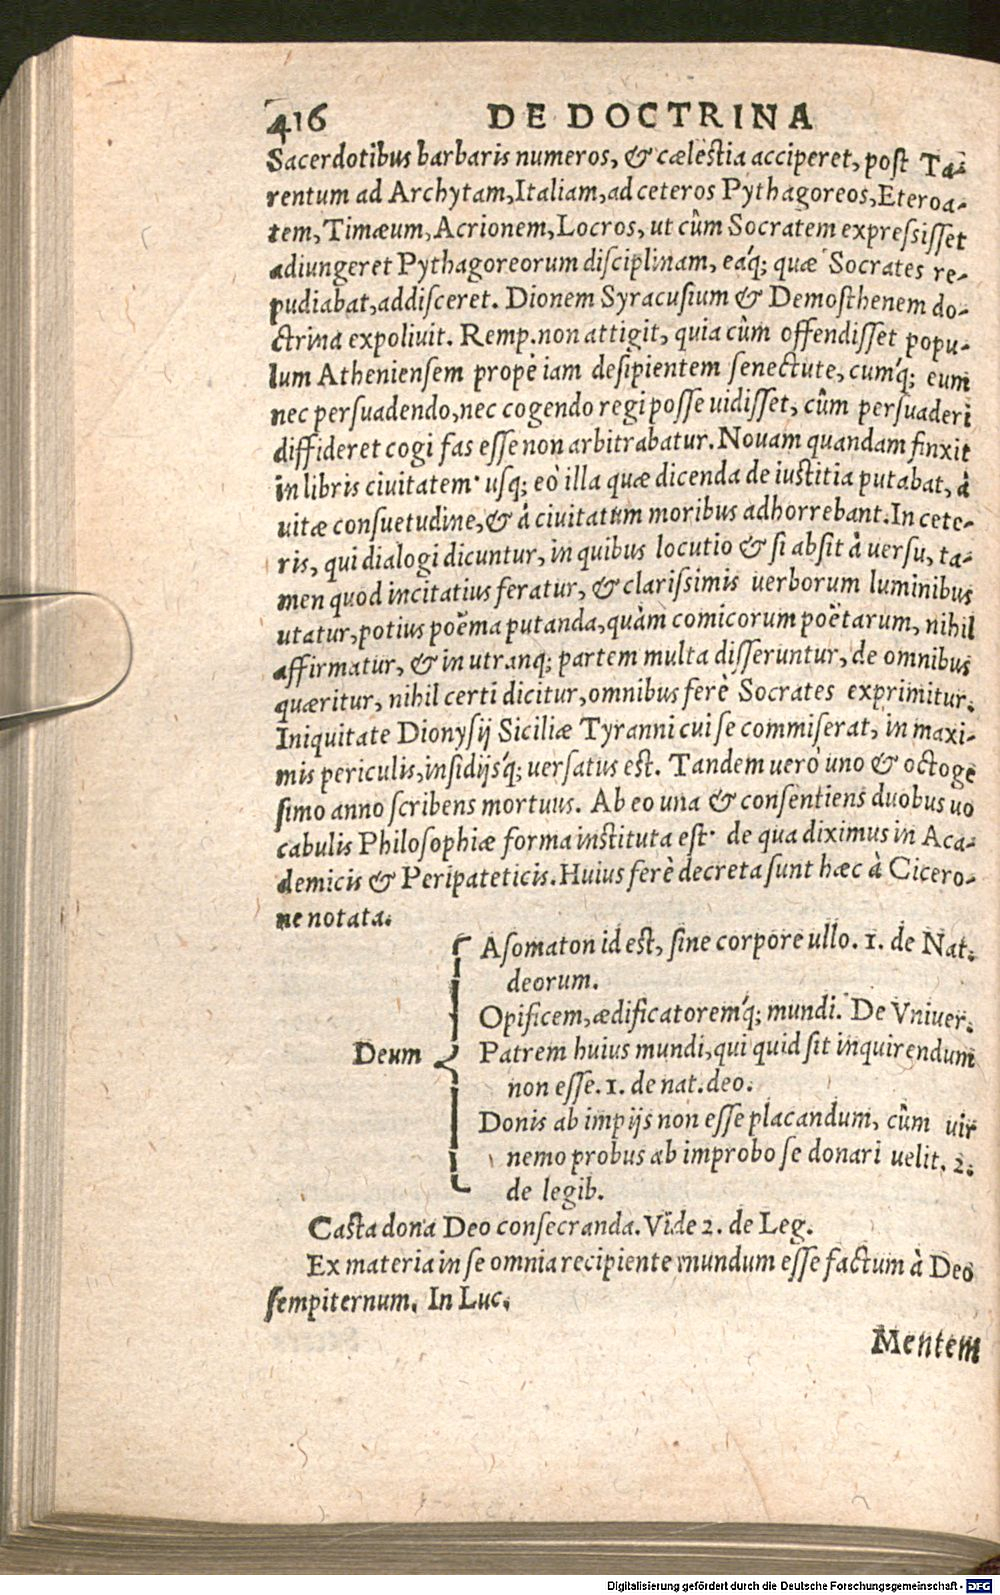 416 DE DOCTRINA
Sacerdotibus barbaris numeros, & cælestia acciperet, post Ta-
rentum ad Archytam, Italiam, ad ceteros Pythagoreos, Eteroa-
tem, Timæum, Acrionem, Locros, ut cûm Socratem expressisset
adiungeret Pythagoreorum disciplinam, eáq; quæ Socrates re-
pudiabat, addisceret. Dionem Syracusium & Demosthenem do-
ctrina expolivit. Remp. non attigit, quia cûm offendisset popu-
lum Atheniensem propè iam desipientem senectute, cumq́; eum
nec persuadendo, nec cogendo regi posse uidisset, cûm persuaderi
diffideret cogi fas esse non arbitrabatur. Nouam quandam finxit
in libris ciuitatem· usq; eò illa quæ dicenda de iustitia putabat, à
uitæ consuetudine, & à ciuitatum moribus adhorrebant. In cete-
ris, qui dialogi dicuntur, in quibus locutio & si absit à uersu, ta-
men quod incitatius feratur, & clarissimis uerborum luminibus
utatur, potius poëma putanda, quàm comicorum poëtarum, nihil
affirmatur, & in utranq; partem multa disseruntur, de omnibus
quæritur, nihil certi dicitur, omnibus ferè Socrates exprimitur.
Iniquitate Dionysij Siciliæ Tyranni cui se commiserat, in maxi-
mis periculis, insidijsq́; uersatus est. Tandem uerò uno & octoge
simo anno scribens mortuus. Ab eo una & consentiens duobus uo
cabulis Philosophiæ forma instituta est· de qua diximus in Aca-
demicis & Peripateticis. Huius ferè decreta sunt hæc à Cicero-
ne notata.
Asomaton id est, sine corpore ullo. 1. de Nat.
deorum.
Opificem, ædificatoremq́; mundi. De Vniuer.
Deum
Patrem huius mundi, qui quid sit inquirendum
non esse. 1. de nat. deo.
Donis ab impijs non esse placandum, cûm uir
nemo probus ab improbo se donari uelit. 2.
de legib.
Casta dona Deo consecranda. Vide 2. de Leg.
Ex materia in se omnia recipiente mundum esse factum à Deo
sempiternum. In Luc.
Mentem
Digitalisierung gefördert durch die Deutsche Forschungsgemeinschaft - DFG